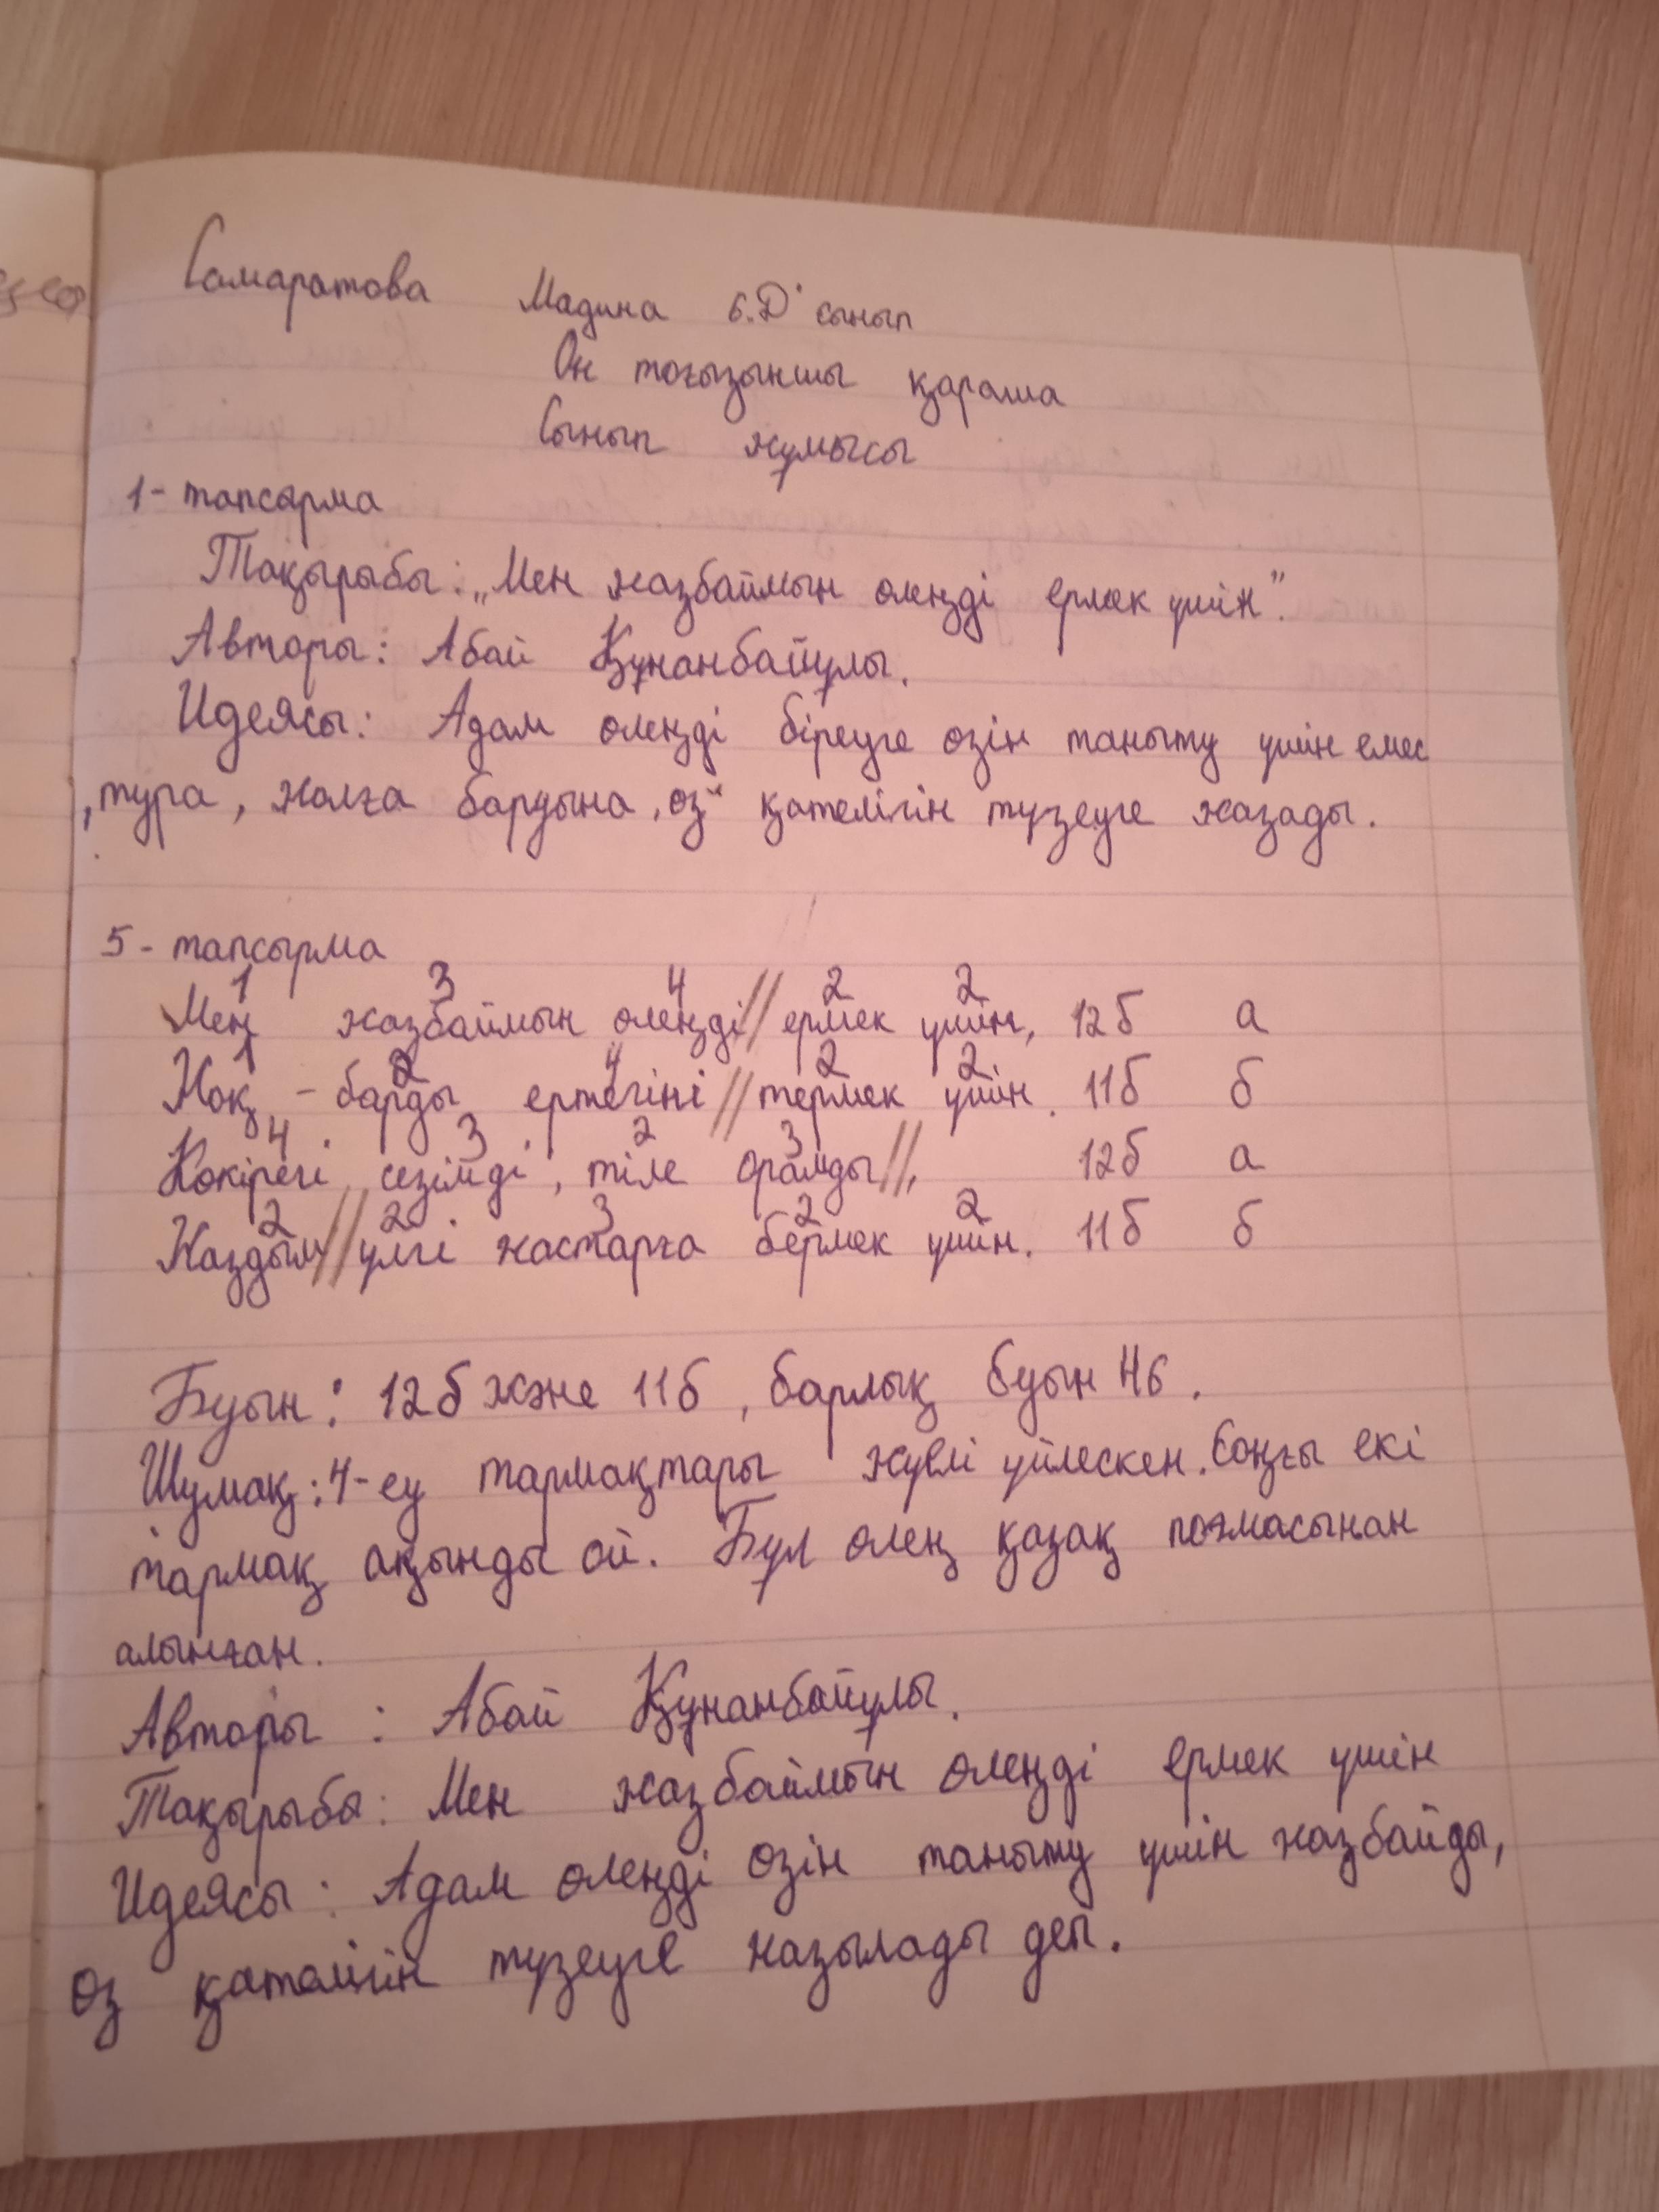 Самаратова Мадина 6.Д' сынып
Он тоғызыншы қараша
Сынып жұмысы
1- тапсырма
Тақырыбы: „Мен жазбаймын өлеңді ермек үшін".
Авторы: Абай Құнанбайұлы.
Идеясы: Адам өлеңді біреуге өзін таныту үшін емес
, тура, жолға бардына, өз қателігін түзеуге жазады.
5- тапсырма
1 3 4 2 2
Мен жазбаймын өлеңді // ермек үшін, 12б а
1 2 4 2 2
Жоқ - барды ертегіні // термек үшін. 11б б
4 3 2 3
Көкірегі сезімді, тіле оралды //, 12б а
2 2 3 2 2
Жаздым // үлгі жастарға бермек үшін. 11б б
Буын: 12б және 11б, барлық буын 46.
Шумақ: 4-еу тармақтары жүелі үйлескен. Соңғы екі
тармақ ақынды ой. Бұл өлең қазақ поэмасынан
алынған.
Авторы: Абай Құнанбайұлы.
Тақырыбы: Мен жазбаймын өлеңді ермек үшін
Идеясы: Адам өлеңді өзін таныту үшін жазбайды,
өз қателігін түзеуге жазылады деп.